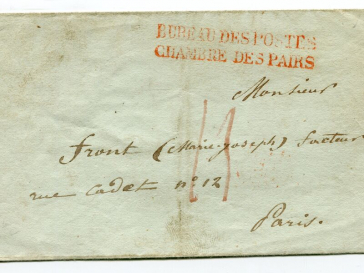 BUREAU DES POSTES
CHAMBRE DES PAIRS
Monsieur
Front (Marie-Joseph) facteur
rue Cadet n° 12
Paris.